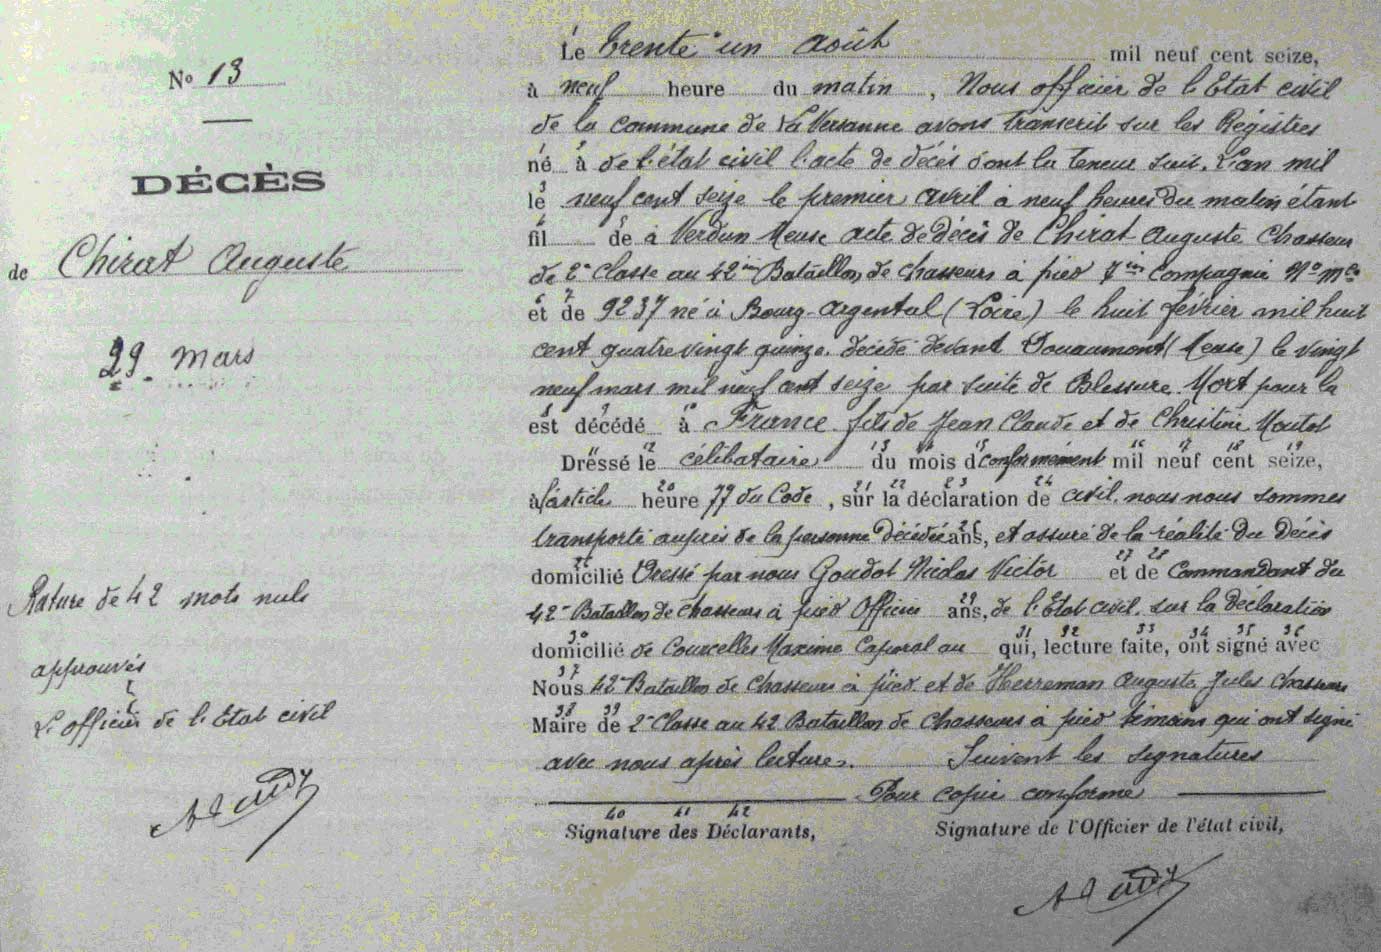 N° 13
DÉCÈS
de Chirat Auguste
29 mars
Rature de 42 mots nuls
approuvés
L'officier de l'Etat civil
Le trente un août mil neuf cent seize,
à neuf heure du matin, Nous officier de l'Etat civil
de la commune de La Versanne avons transcrit sur les Régistres
né à de l'état civil l'acte de décès dont la teneur suit. L'an mil
le neuf cent seize le premier avril à neuf heures du matin étant
fil de à Verdun Meuse acte de décès de Chirat Auguste Chasseur
de 2e classe au 42e Bataillon de chasseurs à pied 7e Compagnie N° Mle
et de 9237 né à Bourg-Argental (Loire) le huit février mil huit
cent quatre vingt quinze. décédé devant Douaumont (Meuse) le vingt
neuf mars mil neuf cent seize par suite de Blessure. Mort pour la
est décédé à France fils de Jean Claude et de Christine Moutot
Dressé le célibataire du mois d conformément mil neuf cent seize,
à l'article heure 77 du Code, sur la déclaration de civil. nous nous sommes
transporté auprès de la personne décédée ans, et assuré de la réalité du décès
domicilié Dressé par nous Goudot Nicolas Victor et de Commandant du
42e Bataillon de chasseurs à pied Officier ans, de l'Etat civil. sur la déclaration
domicilié de Courcelles Maxime Caporal au qui, lecture faite, ont signé avec
Nous 42e Bataillon de chasseurs à pied et de Herreman Auguste Jules chasseur
Maire de 2e Classe au 42 Bataillon de chasseurs à pied témoins qui ont signé
avec nous après lecture. Suivent les signatures
Pour copie conforme
Signature des Déclarants, Signature de l'Officier de l'état civil,